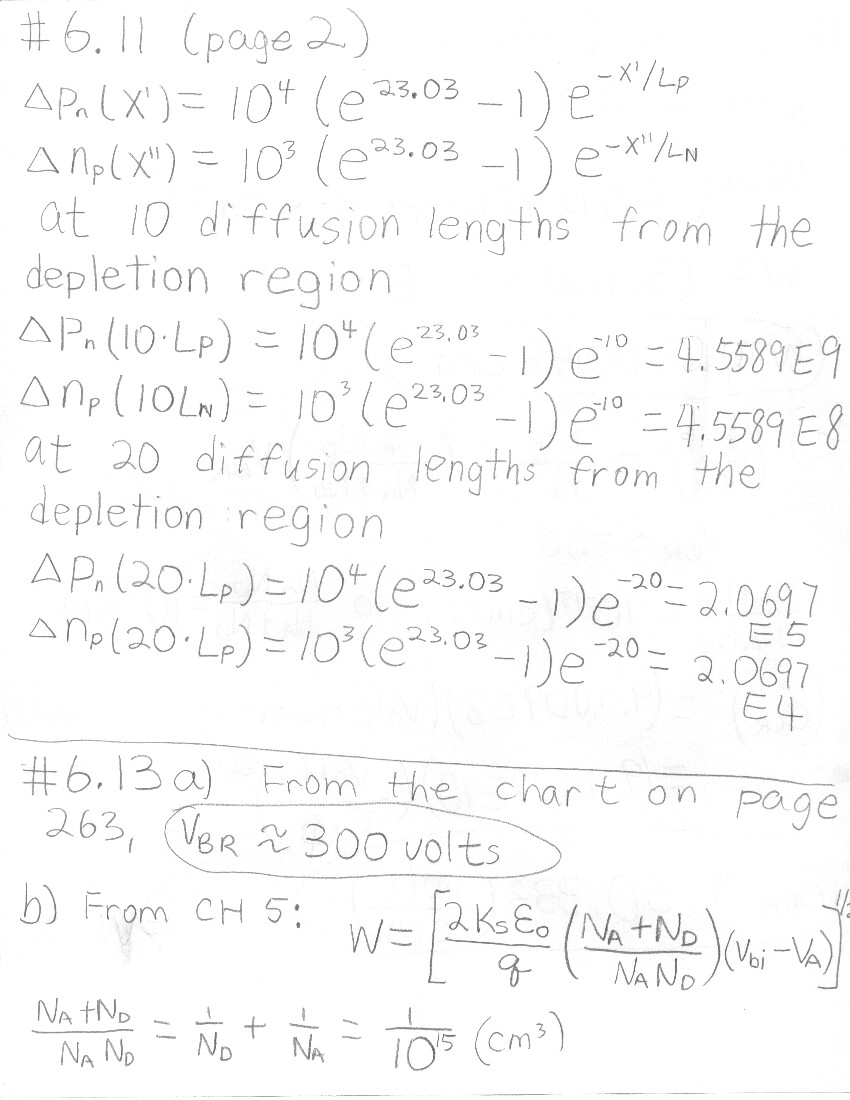 #6.11 (page 2)
Δpₙ(x') = 10⁴ (e^23.03 − 1) e^−x'/Lp
Δnₚ(x") = 10³ (e^23.03 − 1) e^−x"/LN
at 10 diffusion lengths from the
depletion region
ΔPₙ(10·Lp) = 10⁴(e^23.03 − 1) e^−10 = 4.5589E9
Δnₚ(10LN) = 10³(e^23.03 − 1) e^−10 = 4.5589E8
at 20 diffusion lengths from the
depletion region
ΔPₙ(20·Lp) = 10⁴(e^23.03 − 1)e^−20 = 2.0697
E5
Δnₚ(20·Lp) = 10³(e^23.03 − 1)e^−20 = 2.0697
E4
#6.13 a) From the chart on page
263, VBR ≈ 300 volts
b) From CH 5: W = [2Ksε₀/q (NA + ND / NA ND)(Vbi − VA)]^1/2
NA + ND / NA ND = 1/ND + 1/NA = 1/10¹⁵ (cm³)